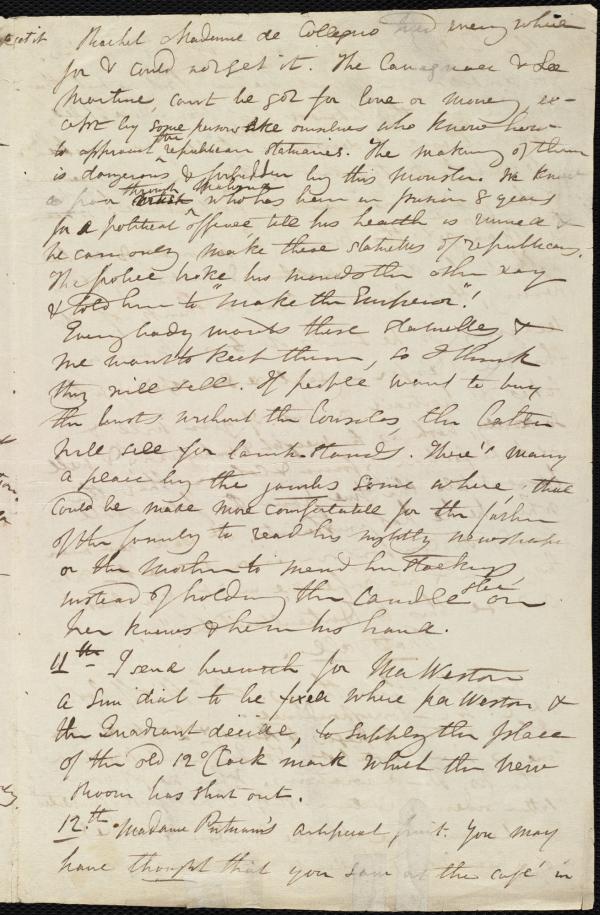 Rachel Madame de Collegno had every where
for & could not get it. The Cavaignac & La
Martine, cant be got for love or money, ex-
cept by some persons like ourselves who know how
to appreciate the republican statuaries. The making of them
is dangerous & forbidden by this monster. We know
a poor through Malignan who has been in prison 8 years
for a political offence till his health is ruined &
he can only make these statuettes of republicans.
The police broke his moulds the other day
& told him to "make the Emperor"!
Every body wants these statuettes, &
we want to keep them, so I think
they will sell. If people want to buy
the busts without the Consoles, the latter
will sell for lamp-stands. There's many
a place by the jambs some where that
could be made more comfortable for the father
of the family to read his nightly newspaper
or the mother to mend her stockings
instead of holding the candle stick on
her knees & he in his hand.
11th I send herewith for Ma Weston
a Sun dial to be fixed where pa Weston &
the Quadrant decide, to supply the place
of the old 12 o'Clock mark which the new
Room has shut out.
12th Madame Putnam's artificial fruit. You may
have thought that you saw at the café in